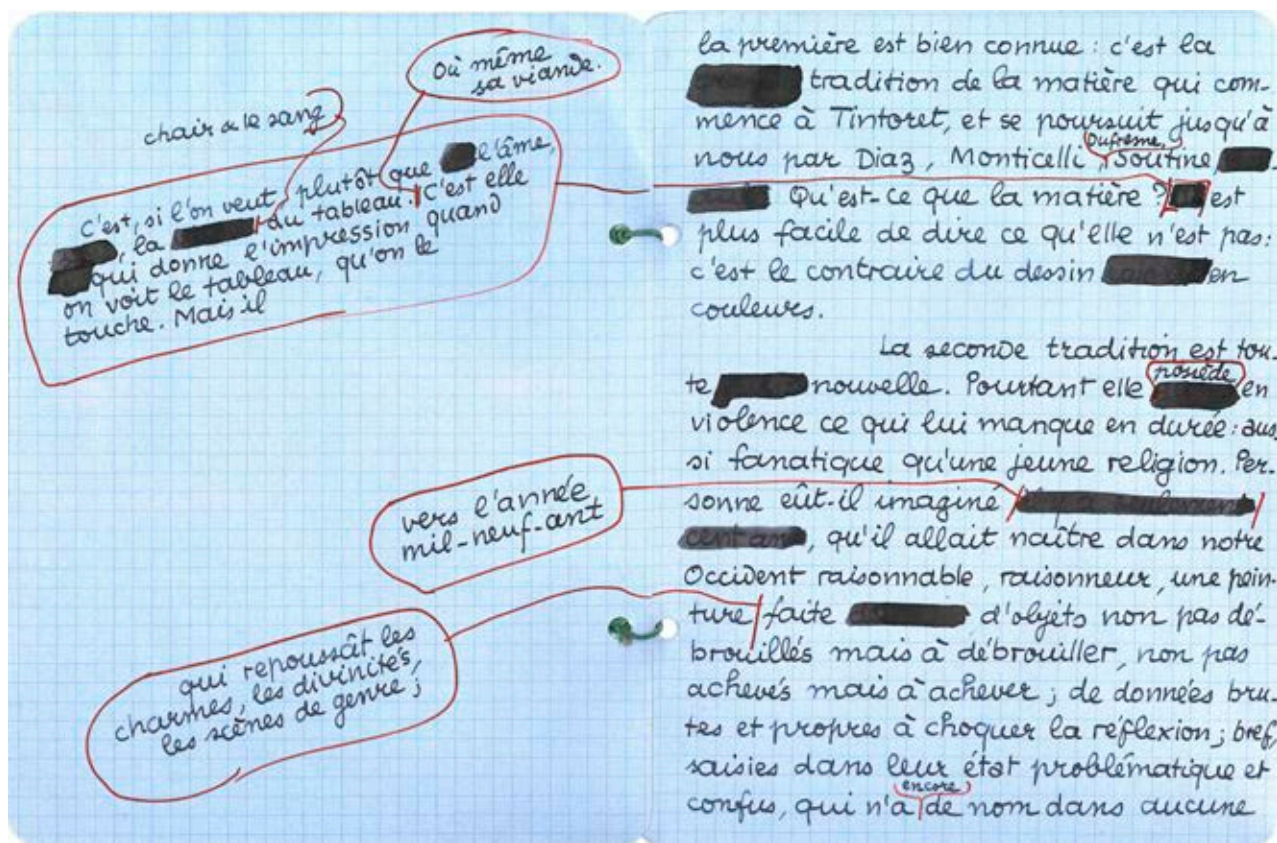 Où même
sa viande.
chair & le sang
C'est, si l'on veut, plutôt que l'âme,
, la du tableau. C'est elle
qui donne l'impression, quand
on voit le tableau, qu'on le
touche. Mais il
vers l'année
mil-neuf-ant
qui repoussât les
charmes, les divinités,
les scènes de genre ;
la première est bien connue : c'est la
tradition de la matière qui com-
mence à Tintoret, et se poursuit jusqu'à
Dufresne,
nous par Diaz, Monticelli, Soutine,
Qu'est-ce que la matière ? est
plus facile de dire ce qu'elle n'est pas :
c'est le contraire du dessin en
couleurs.
La seconde tradition est tou-
possède
te nouvelle. Pourtant elle en
violence ce qui lui manque en durée : aus
si fanatique qu'une jeune religion. Per-
sonne eût-il imaginé
cent ans, qu'il allait naître dans notre
Occident raisonnable, raisonneur, une pein-
ture faite d'objets non pas dé-
brouillés mais à débrouiller, non pas
achevés mais à achever ; de données bru-
tes et propres à choquer la réflexion ; bref,
saisies dans leur état problématique et
encore
confus, qui n'a de nom dans aucune